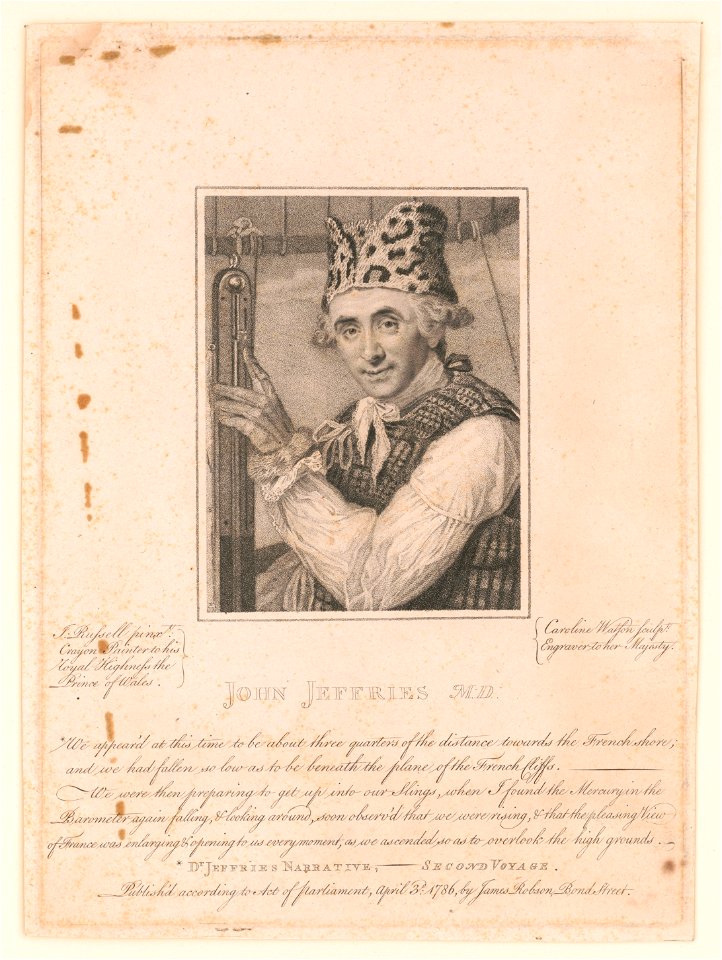 J. Russell pinx.t
Crayon Painter to his
Royal Highness the
Prince of Wales.
Caroline Watson sculp.t
Engraver to her Majesty.
JOHN JEFFRIES M.D.
*We appear'd at this time to be about three quarters of the distance towards the French shore;
and we had fallen so low as to be beneath the plane of the French Cliffs.
We were then preparing to get up into our Slings, when I found the Mercury in the
Barometer again falling, & looking around, soon observ'd that we were rising, & that the pleasing View
of France was enlarging & opening to us every moment, as we ascended so as to overlook the high grounds.
* Dr. JEFFRIES NARRATIVE, — SECOND VOYAGE.
Publish'd according to Act of Parliament, April 3.d 1786, by James Robson, Bond Street.